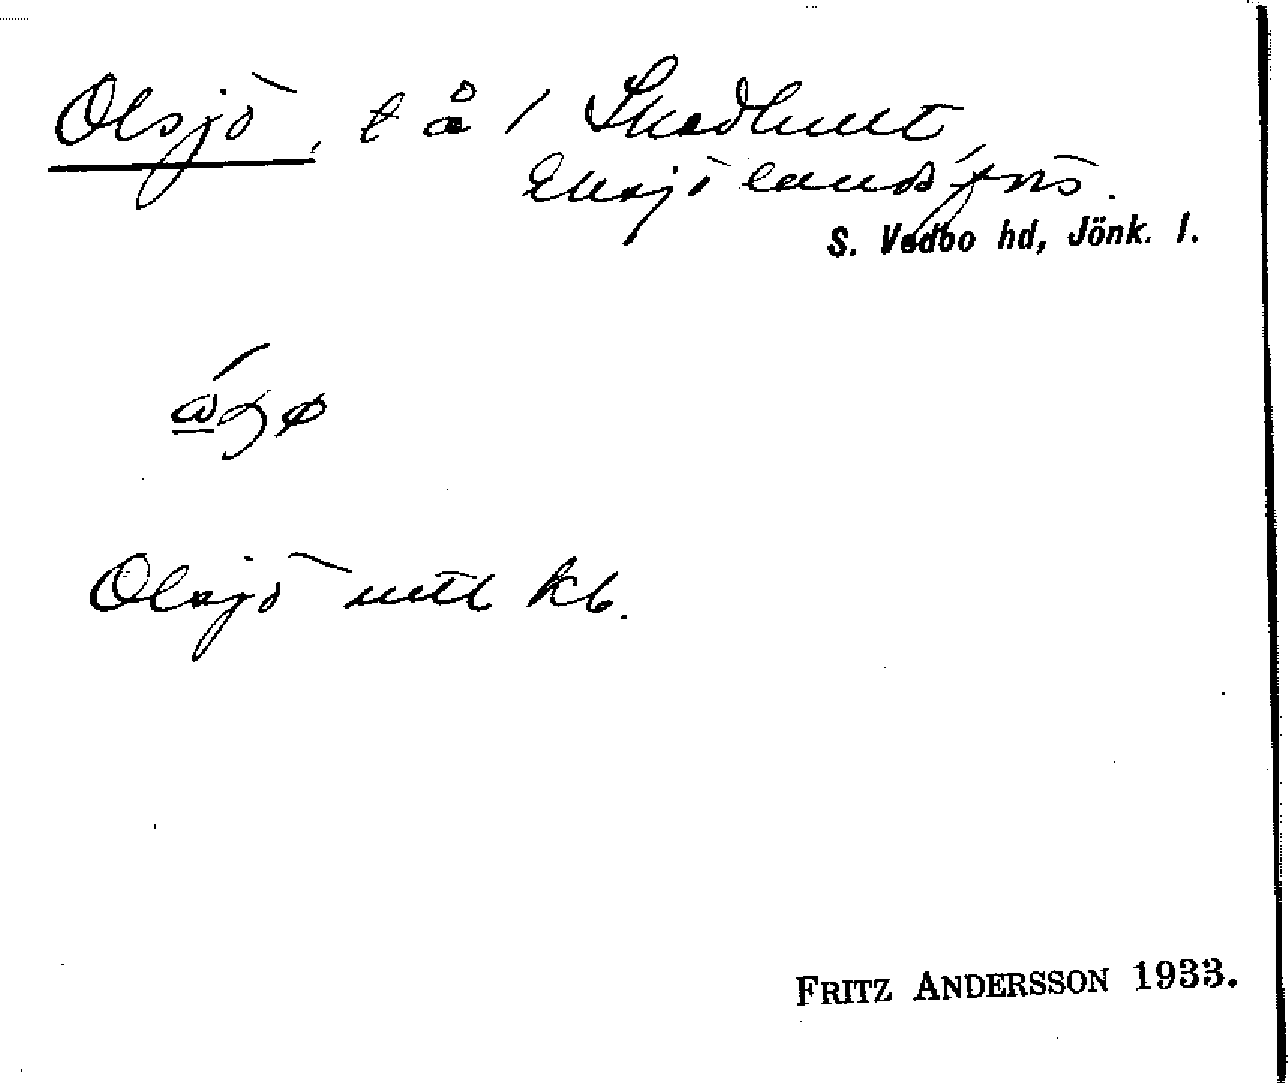 Olsjö, t å / Skedhult
Eksjö landsförs.
S. Vedbo hd, Jönk. l.
Olsjö mtl kb.
FRITZ ANDERSSON 1933.